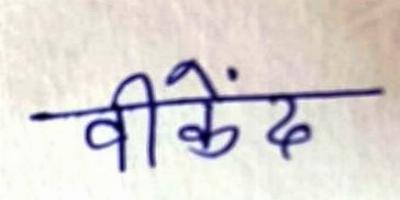 वीकेंद